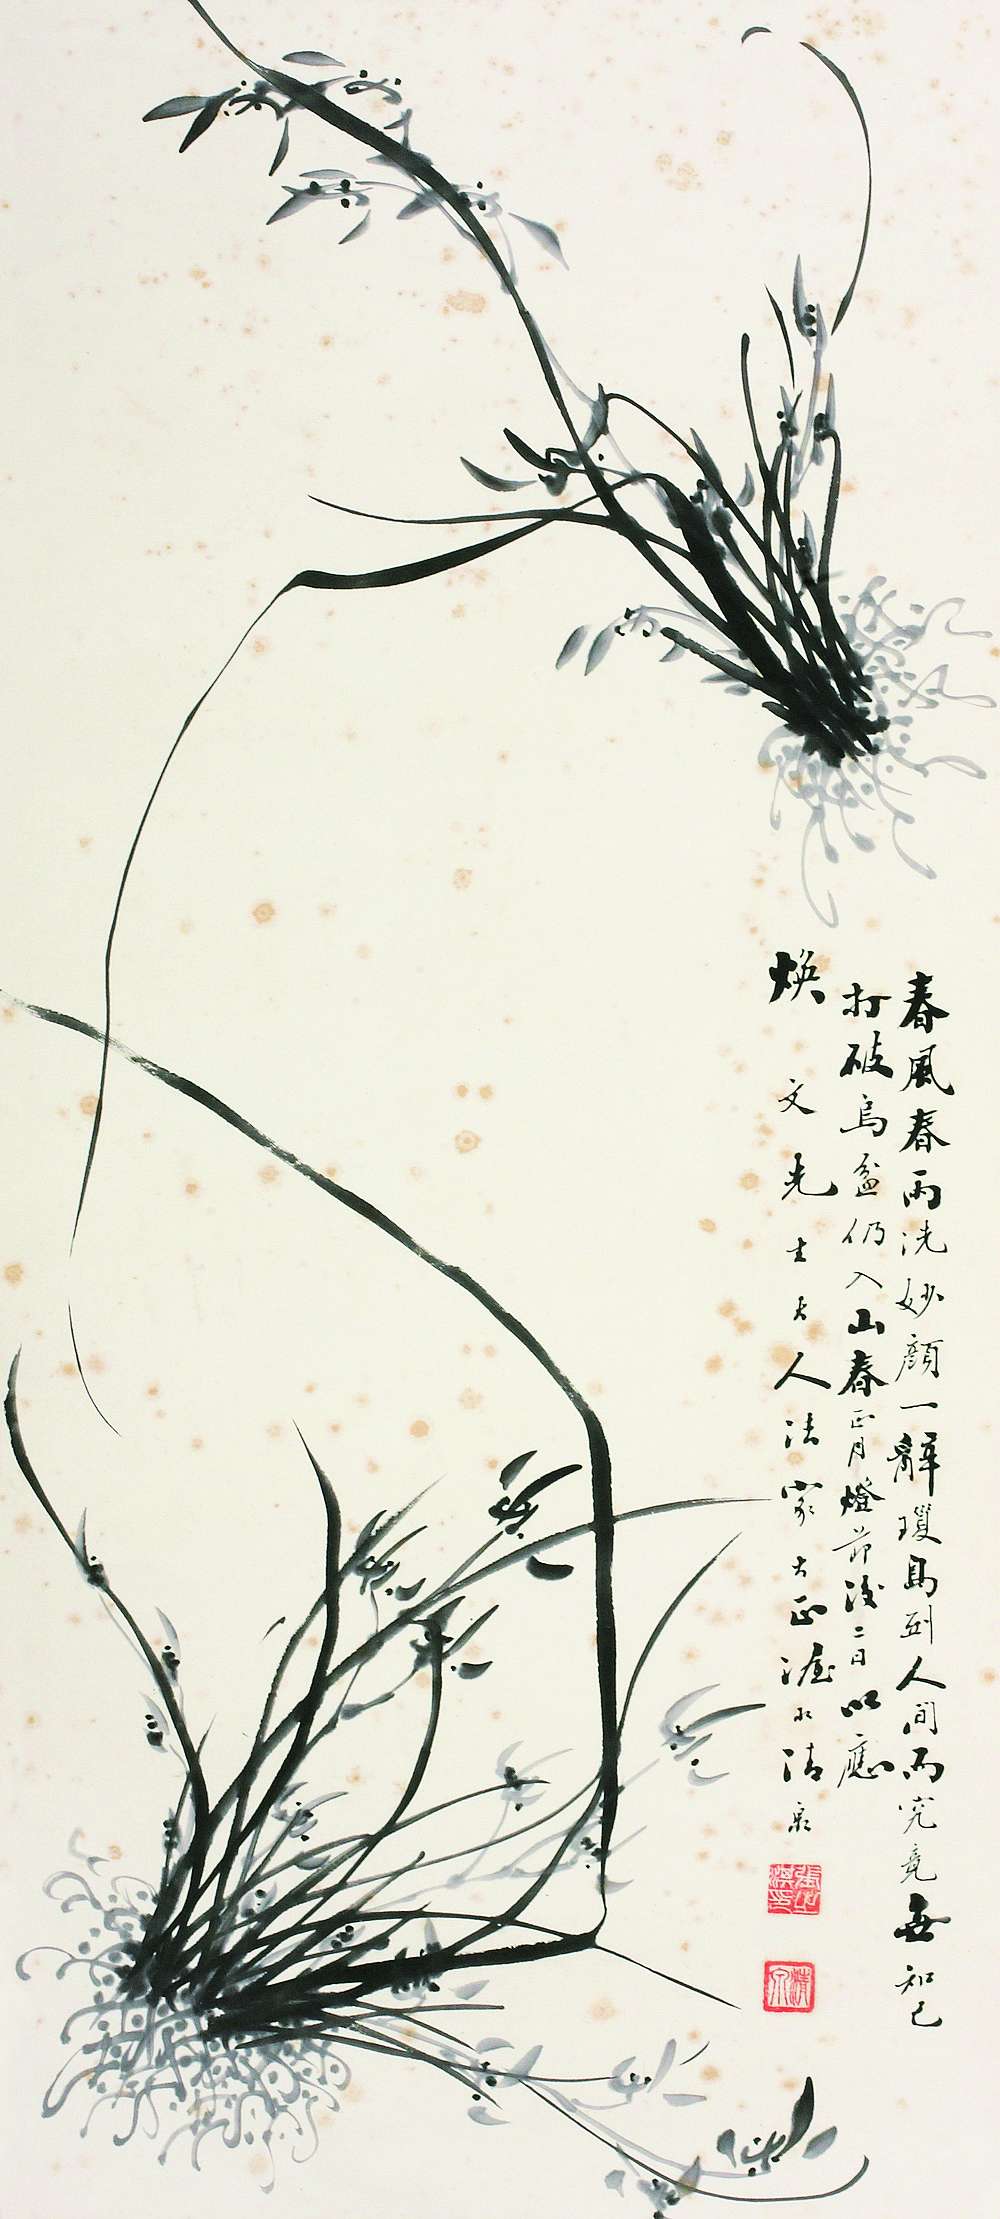 春風春雨洗妙顏一辭瓊島到人間而究竟無知己
打破烏盆仍入山春正月燈節後二日以應
煥文先生大人法家大正渥水清泉
清泉